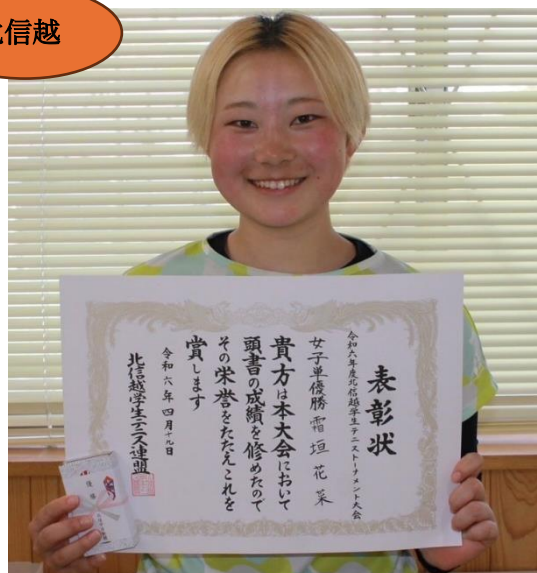 北信越
表彰状
令和六年度北信越学生テニストーナメント大会
女子単優勝 霜垣花菜
貴方は本大会において
頭書の成績を修めたので
その栄誉をたたえこれを
賞します
令和六年四月十九日
北信越学生テニス連盟